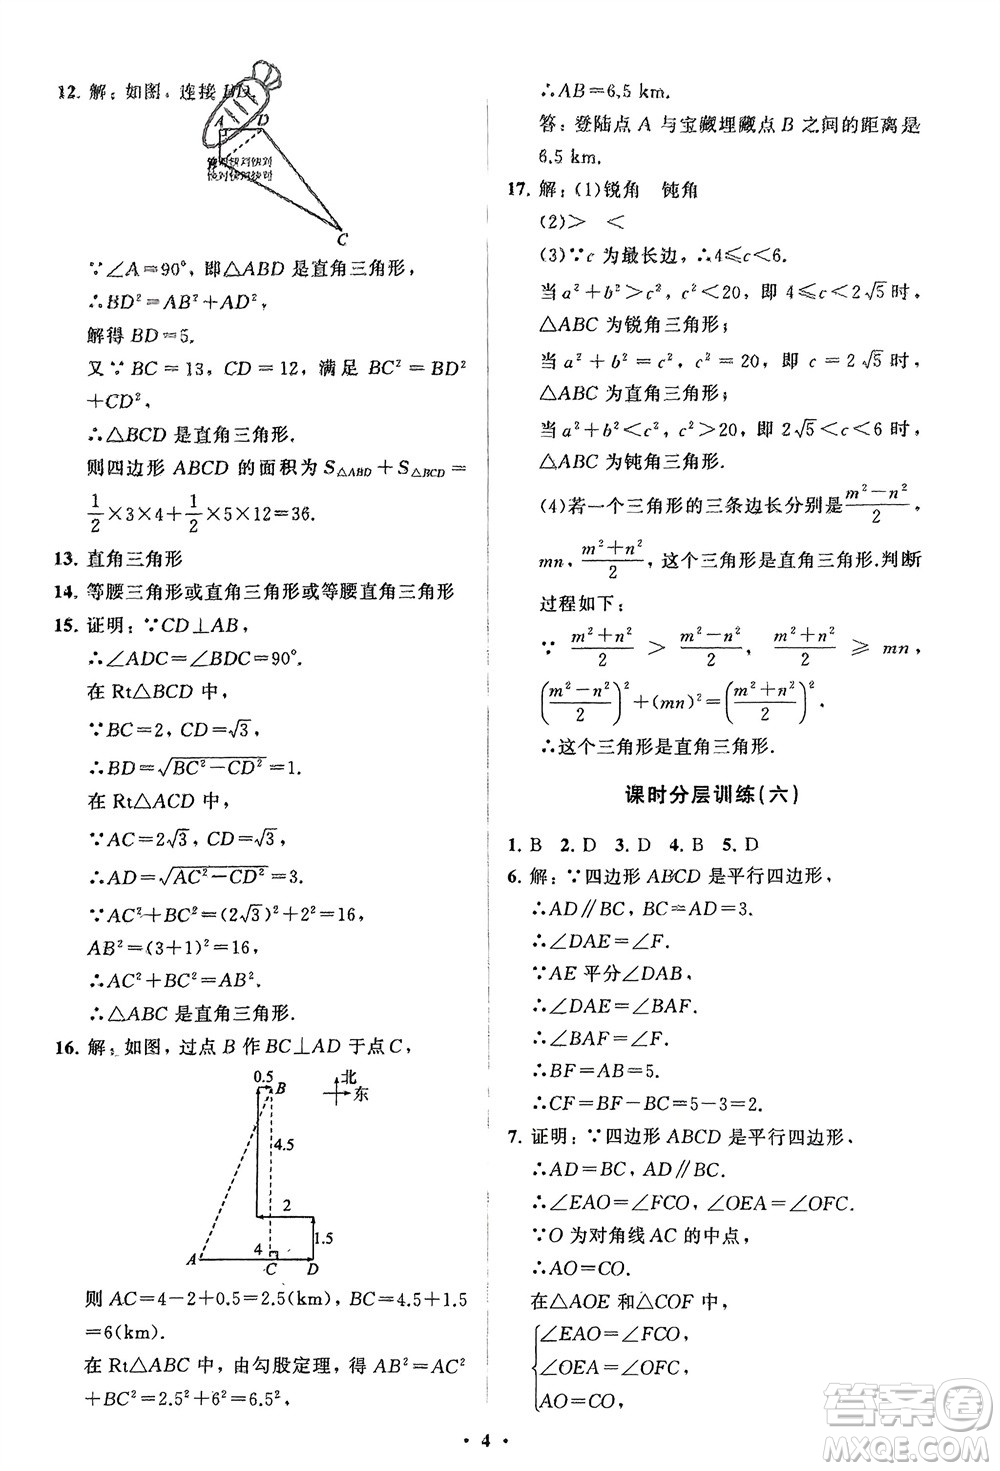 12. 解:如图,连接 BD.
A D
B
快对快对快对
快对快对快对
C
∵∠A=90°,即△ABD 是直角三角形,
∴BD²=AB²+AD²,
解得 BD=5.
又∵BC=13,CD=12,满足 BC²=BD²
+CD²,
∴△BCD 是直角三角形.
则四边形 ABCD 的面积为 S△ABD+S△BCD=
1/2×3×4+1/2×5×12=36.
13. 直角三角形
14. 等腰三角形或直角三角形或等腰直角三角形
15. 证明:∵CD⊥AB,
∴∠ADC=∠BDC=90°.
在 Rt△BCD 中,
∵BC=2,CD=√3,
∴BD=√(BC²-CD²)=1.
在 Rt△ACD 中,
∵AC=2√3,CD=√3,
∴AD=√(AC²-CD²)=3.
∵AC²+BC²=(2√3)²+2²=16,
AB²=(3+1)²=16,
∴AC²+BC²=AB².
∴△ABC 是直角三角形.
16. 解:如图,过点 B 作 BC⊥AD 于点 C,
0.5 北
B 东
4.5
2
4 1.5
A C D
则 AC=4-2+0.5=2.5(km),BC=4.5+1.5
=6(km).
在 Rt△ABC 中,由勾股定理,得 AB²=AC²
+BC²=2.5²+6²=6.5²,
∴AB=6.5 km.
答:登陆点 A 与宝藏埋藏点 B 之间的距离是
6.5 km.
17. 解:(1)锐角 钝角
(2)> <
(3)∵c 为最长边,∴4≤c<6.
当 a²+b²>c²,c²<20,即 4≤c<2√5时,
△ABC 为锐角三角形;
当 a²+b²=c²,c²=20,即 c=2√5时,
△ABC 为直角三角形;
当 a²+b²<c²,c²>20,即 2√5<c<6 时,
△ABC 为钝角三角形.
(4)若一个三角形的三条边长分别是(m²-n²)/2,
mn,(m²+n²)/2,这个三角形是直角三角形.判断
过程如下:
∵(m²+n²)/2 > (m²-n²)/2, (m²+n²)/2 ≥ mn,
((m²-n²)/2)²+(mn)²=((m²+n²)/2)².
∴这个三角形是直角三角形.
课时分层训练(六)
1. B 2. D 3. D 4. B 5. D
6. 解:∵四边形 ABCD 是平行四边形,
∴AD∥BC,BC=AD=3.
∴∠DAE=∠F.
∵AE 平分∠DAB,
∴∠DAE=∠BAF.
∴∠BAF=∠F.
∴BF=AB=5.
∴CF=BF-BC=5-3=2.
7. 证明:∵四边形 ABCD 是平行四边形,
∴AD=BC,AD∥BC.
∴∠EAO=∠FCO,∠OEA=∠OFC.
∵O 为对角线 AC 的中点,
∴AO=CO.
在△AOE 和△COF 中,
∠EAO=∠FCO,
∠OEA=∠OFC,
AO=CO,
• 4 •
答案圈
MXQE.COM